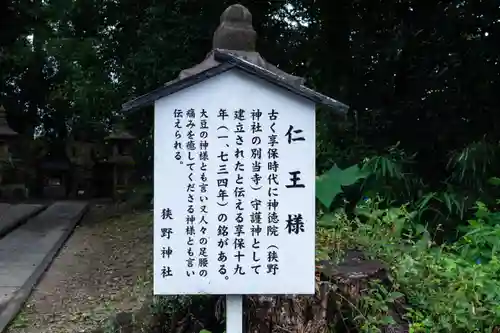 仁王様
古く享保時代に神徳院（狭野
神社の別当寺）守護神として
建立されたと伝える享保十九
年（一、七三四年）の銘がある。
大豆の神様とも言え人々の足腰の
痛みを癒してくださる神様とも言い
伝えられる。
狭野神社